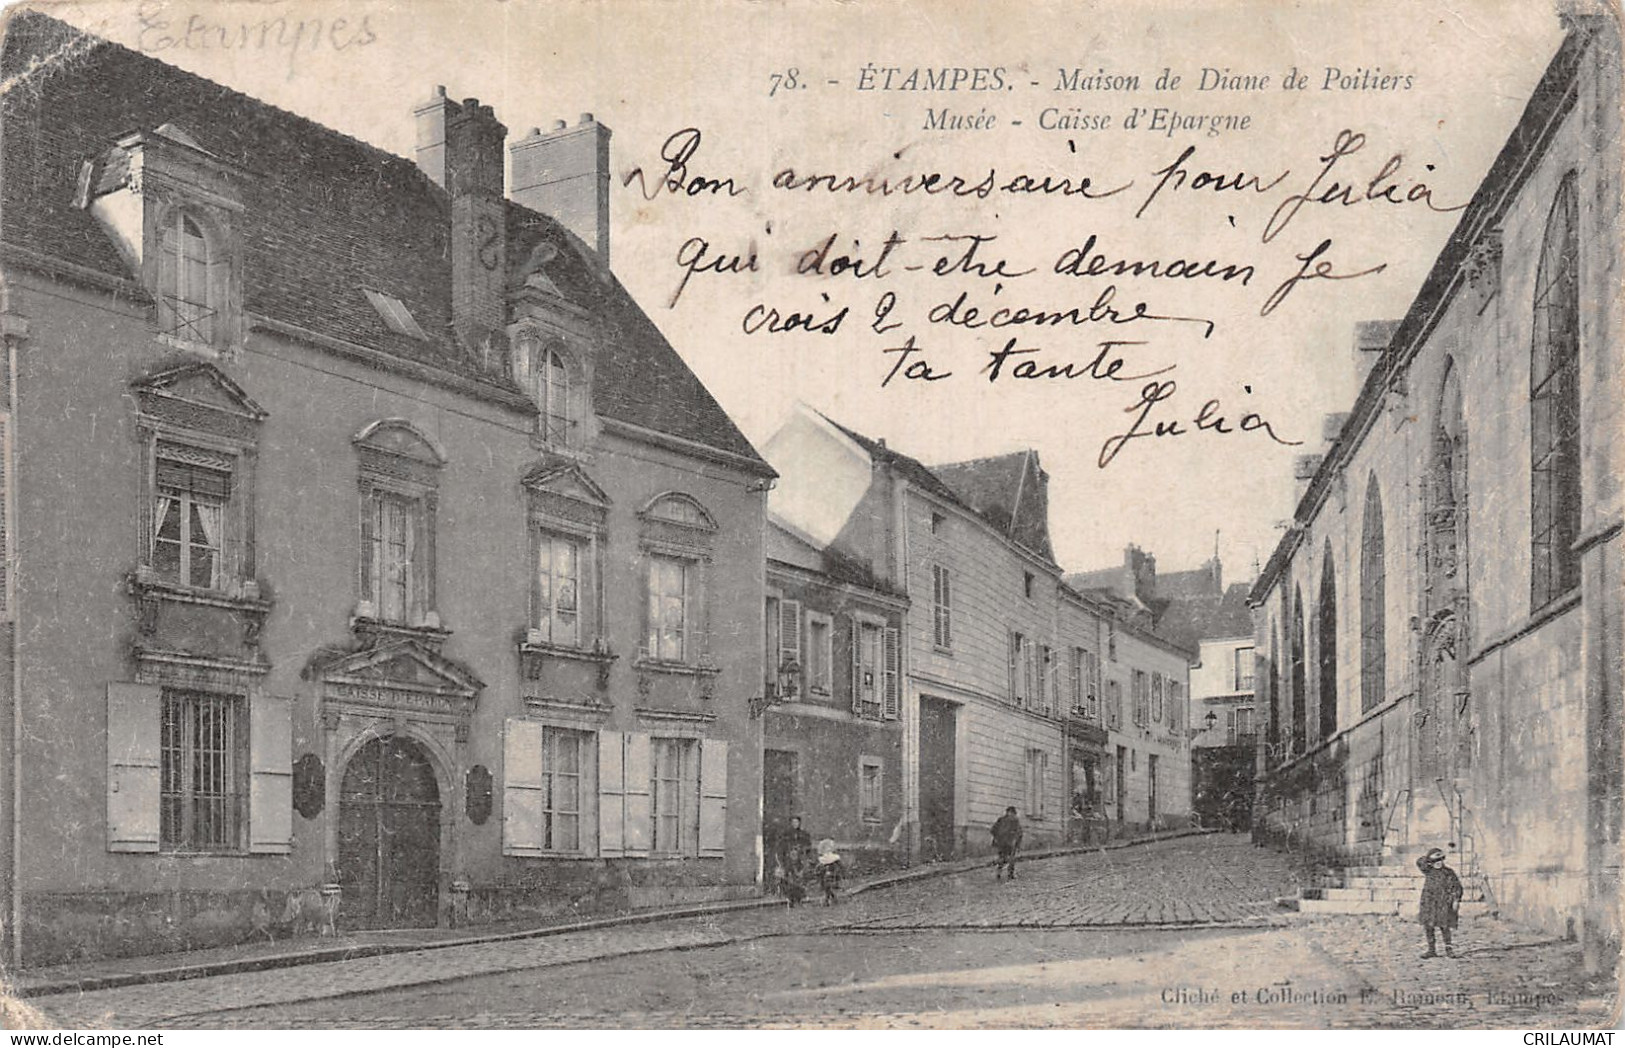 Etampes
78. - ÉTAMPES. - Maison de Diane de Poitiers
Musée - Caïsse d'Epargne
Bon anniversaire pour Julia
qui doit-etre demain Je
crois 2 décembre,
ta tante
Julia
CAISSE D'EPARGNE
Cliché et Collection E. Rameau, Etampes
CRILAUMAT